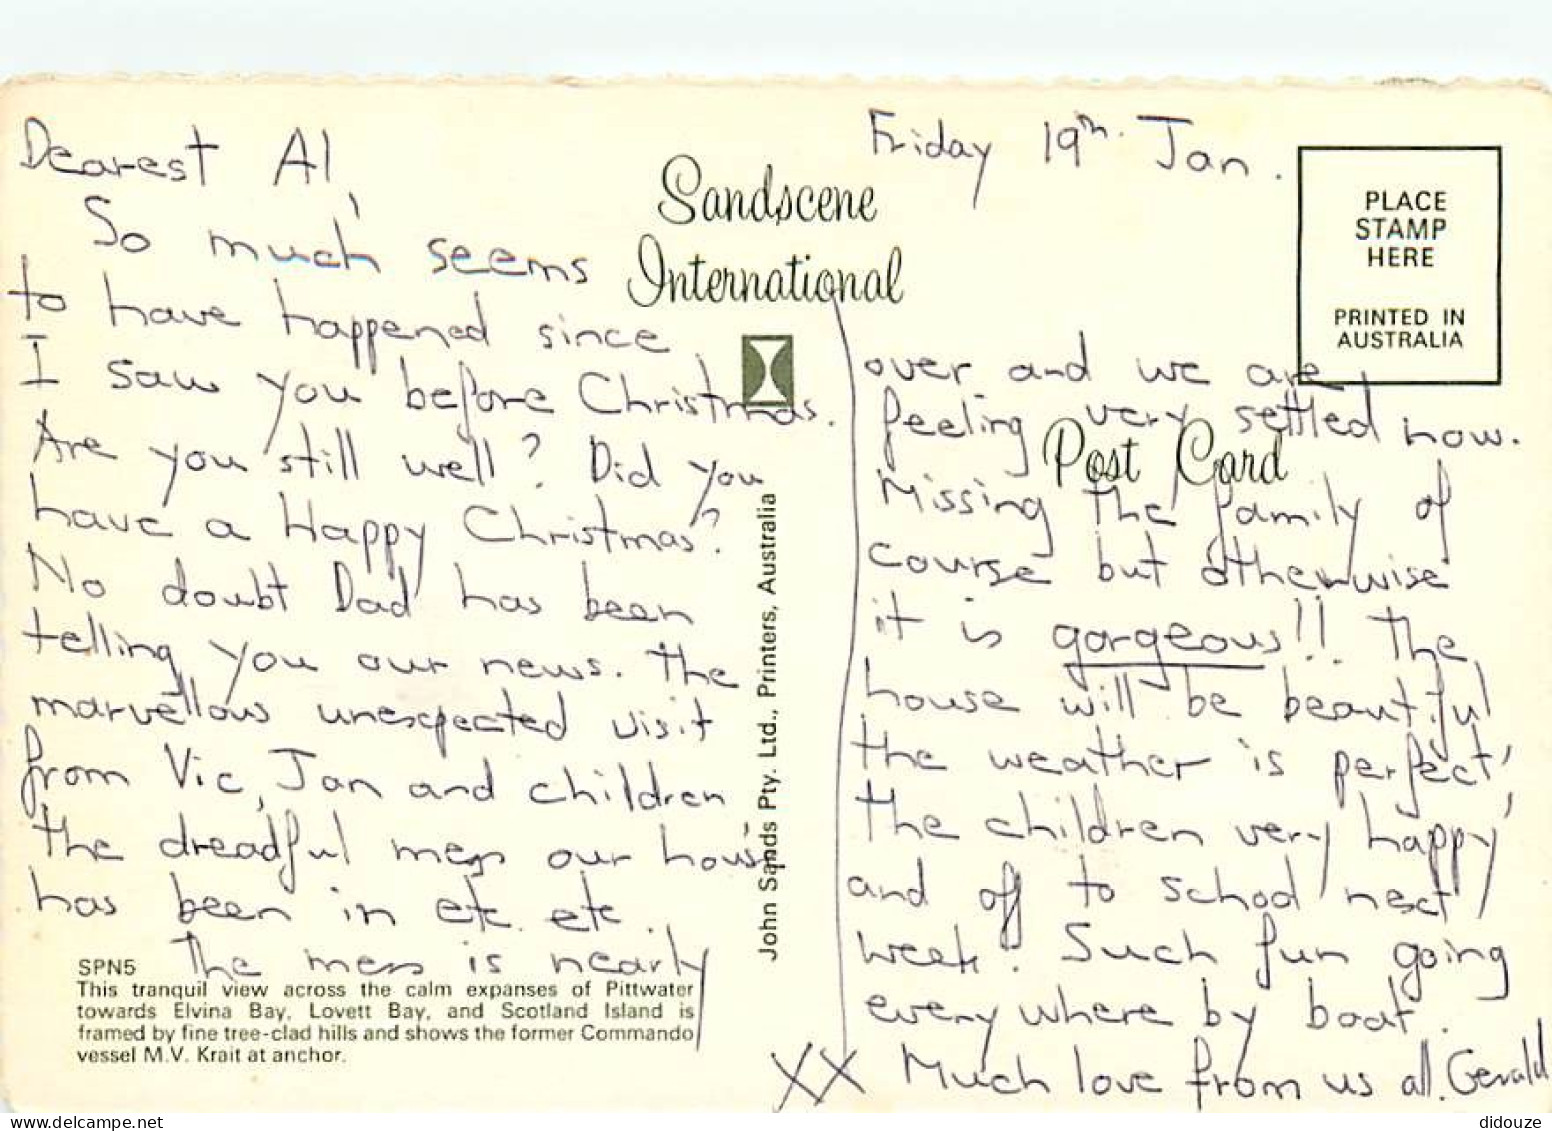 Dearest Al,
So much seems
to have happened since
I saw you before Christmas.
Are you still well? Did you
have a Happy Christmas?
No doubt Dad has been
telling you our news. The
marvellous unexpected visit
from Vic, Jan and children
the dreadful mess our house
has been in etc etc.
The mess is nearly
SPN5
This tranquil view across the calm expanses of Pittwater
towards Elvina Bay, Lovett Bay, and Scotland Island is
framed by fine tree-clad hills and shows the former Commando
vessel M.V. Krait at anchor.
Sandscene
International
John Sands Pty. Ltd., Printers, Australia
Friday 19th Jan.
PLACE
STAMP
HERE
PRINTED IN
AUSTRALIA
Post Card
over and we are
feeling very settled now.
Missing the family of
course but otherwise
it is gorgeous!! The
house will be beautiful
the weather is perfect,
the children very happy,
and off to school next
week. Such fun going
everywhere by boat.
XX Much love from us all. Gerald
didouze